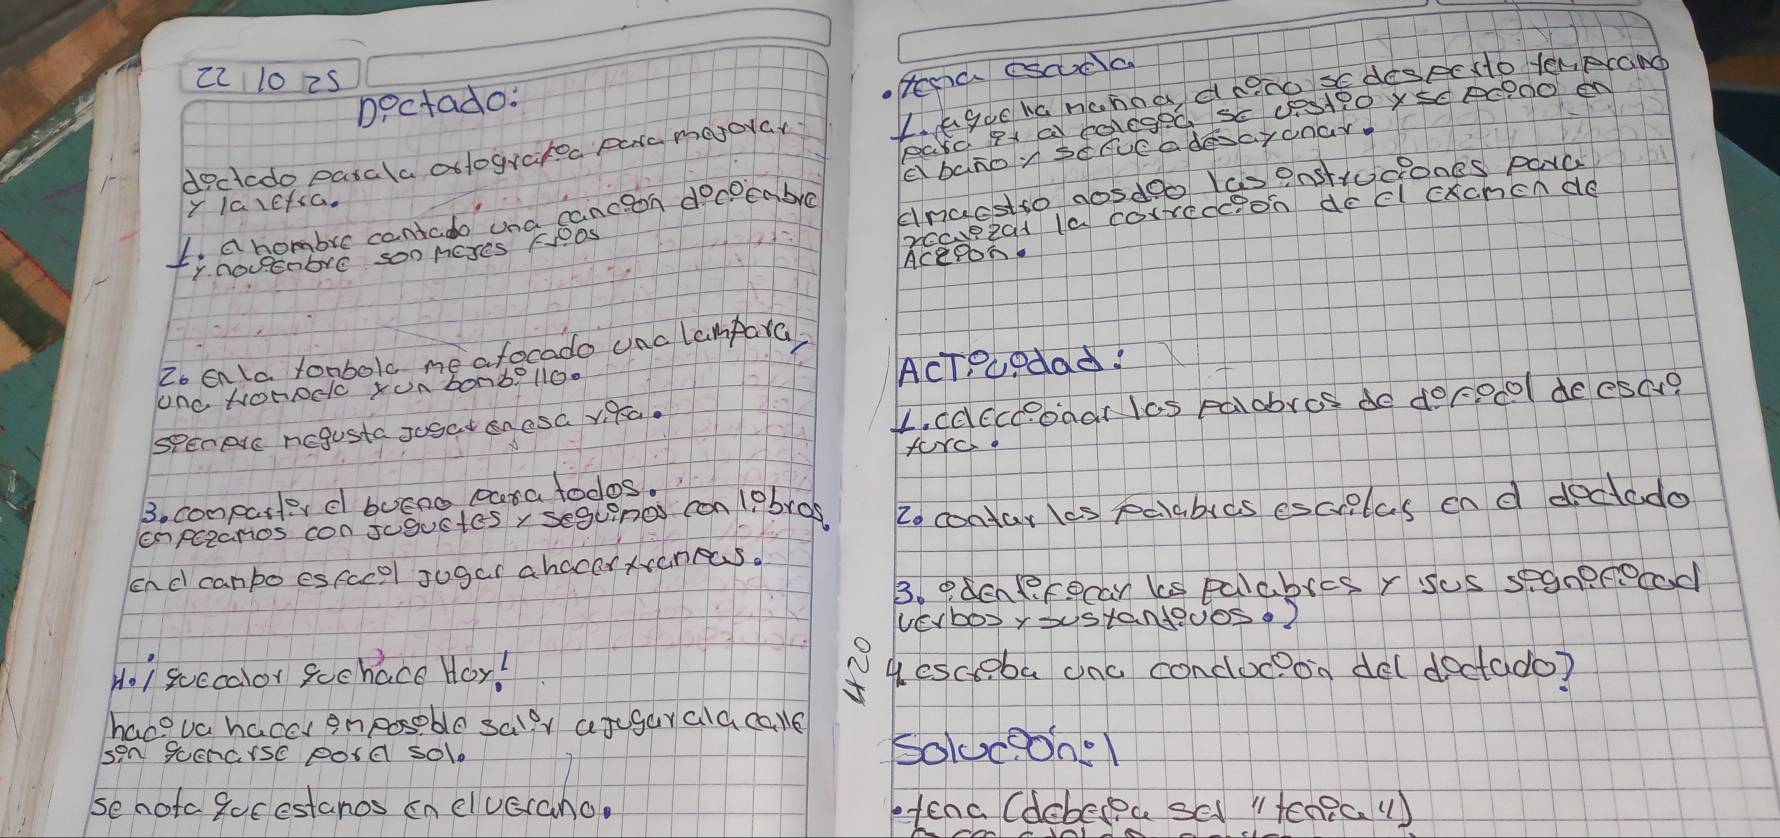 22 10 25
Dictado:
dictado para la ortografica para mejorar
y la letra.
1. a nombre cantado una cancion diciembre
y noviembre son meses frios
2. en la tonbola me a tocado una lampara,
una tronpeta y un bonbillo.
sienpre me gusta jugar en esa rifa.
3. conpartir el bueno para todos.
enpezamos con juguetes y seguimos con libros.
en el canpo es facil jugar a hacer tranpas.
4. ¡que calor que hace Hoy!
haci va hacer inposible salir a jugar a la calle
sin quemarse por el sol.
se nota que estanos en el verano.
420
• tena escuela
1. aquella manna, el nino se desperto temprano
para ir al colegia, se vistio y se peino en
el bano y se fue a desayunar.
el maestro nos dio las instruciones para
realizar la correccion de el examen de
Accion.
ACTividad:
1. coleccionar las palabras de dificil de escri
tura.
2. contar las palabras escritas en el dictado
3. identificar las palabras y sus significad
verbos y sustantivos.?
4. escriba una conducion del dictado?
Solucion:1
• tena (deberia ser "tenia")